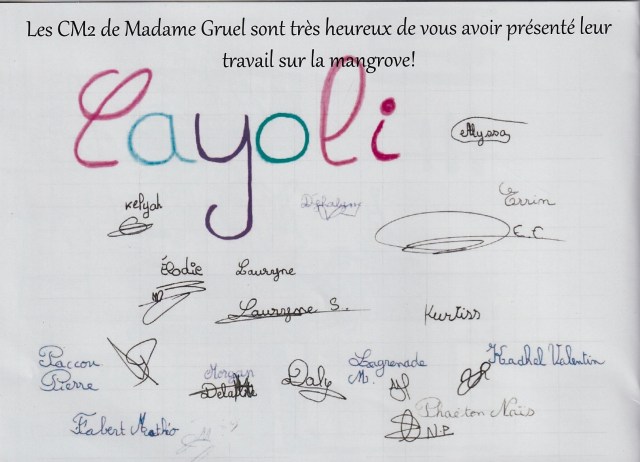 Les CM2 de Madame Gruel sont très heureux de vous avoir présenté leur
travail sur la mangrove!
Cayoli
Alyssa
Kelyah
Errin
E.C
Élodie
Lauryne
Lauryne S.
Kurtiss
Paccou
Pierre
Morgan
Daly
Lagrenade
M.
Keachel Valentin
Phaëton Naïs
N.P
Fabert Mathéo